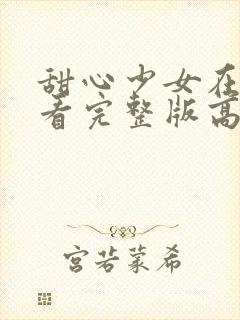 甜心少女在
看完整版高
宫若蒙希